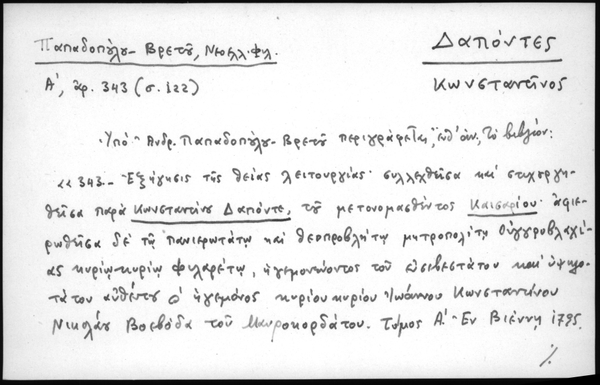 Παπαδοπούλου-Βρετοῦ, Νεοελλ. Φιλ.
Δαπόντες
Α', ἀρ. 343 (σ. 122)
Κωνσταντῖνος
Ὑπὸ Ἀνδρ. Παπαδοπούλου-Βρετοῦ περιγράφεται, ἔνθ' ἀν., τὸ βιβλίον:
«343.- Ἐξήγησις τῆς θείας λειτουργίας· συλλεχθεῖσα καὶ στιχουργη-
θεῖσα παρὰ Κωνσταντίνου Δαπόντε, τοῦ μετονομασθέντος Καισαρίου· ἀφιε-
ρωθεῖσα δὲ τῷ πανιερωτάτῳ καὶ θεοπροβλήτῳ μητροπολίτῃ Οὐγγροβλαχί-
ας κυρίῳ κυρίῳ Φιλαρέτῳ, ἡγεμονεύοντος τοῦ εὐσεβεστάτου καὶ ὑψηλο-
τάτου αὐθέντου καὶ ἡγεμόνος κυρίου κυρίου Ἰωάννου Κωνσταντίνου
Νικολάου Βοεβόδα τοῦ Μαυροκορδάτου. Τόμος Α'. Ἐν Βιέννῃ 1795.
·/.